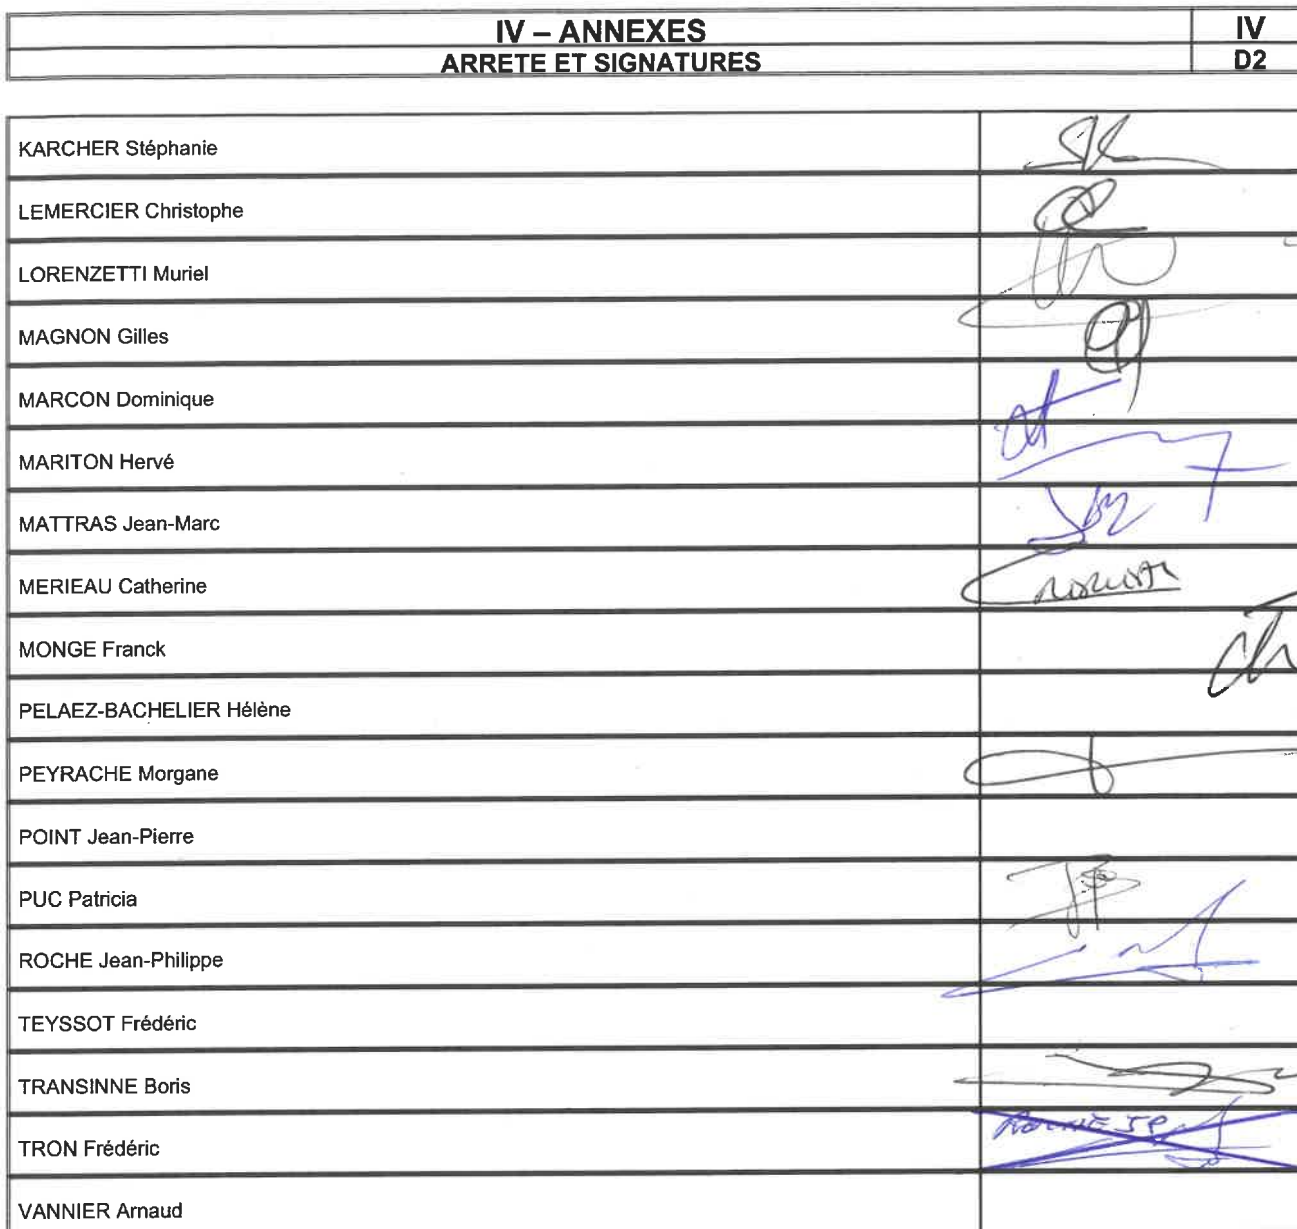 IV – ANNEXES
IV
ARRETE ET SIGNATURES
D2
KARCHER Stéphanie
LEMERCIER Christophe
LORENZETTI Muriel
MAGNON Gilles
MARCON Dominique
MARITON Hervé
MATTRAS Jean-Marc
MERIEAU Catherine
MONGE Franck
PELAEZ-BACHELIER Hélène
PEYRACHE Morgane
POINT Jean-Pierre
PUC Patricia
ROCHE Jean-Philippe
TEYSSOT Frédéric
TRANSINNE Boris
TRON Frédéric
ROCHE JP
VANNIER Arnaud